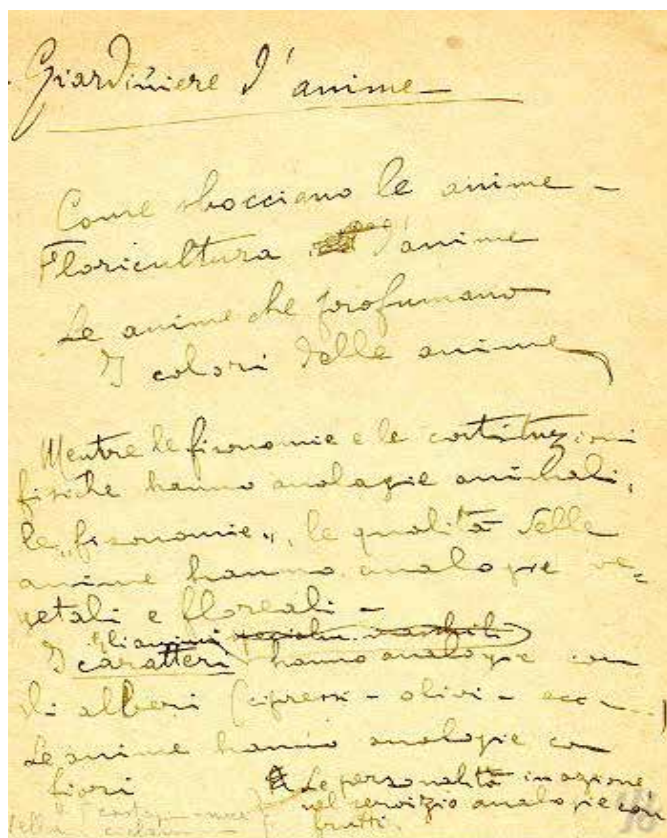 Giardiniere d'anime –
Come sbocciano le anime –
Floricultura d'anime
Le anime che profumano
I colori delle anime
Mentre le fisonomie e le costituzioni
fisiche hanno analogie animali,
le „fisonomie", le qualità delle
anime hanno analogie ve=
getali e floreali –
Gli animi
I caratteri hanno analogie con
di alberi (cipressi – olivi – ecc –)
Le anime hanno analogie con
fiori
Le personalità in azione
nel servizio analogie con
frutti